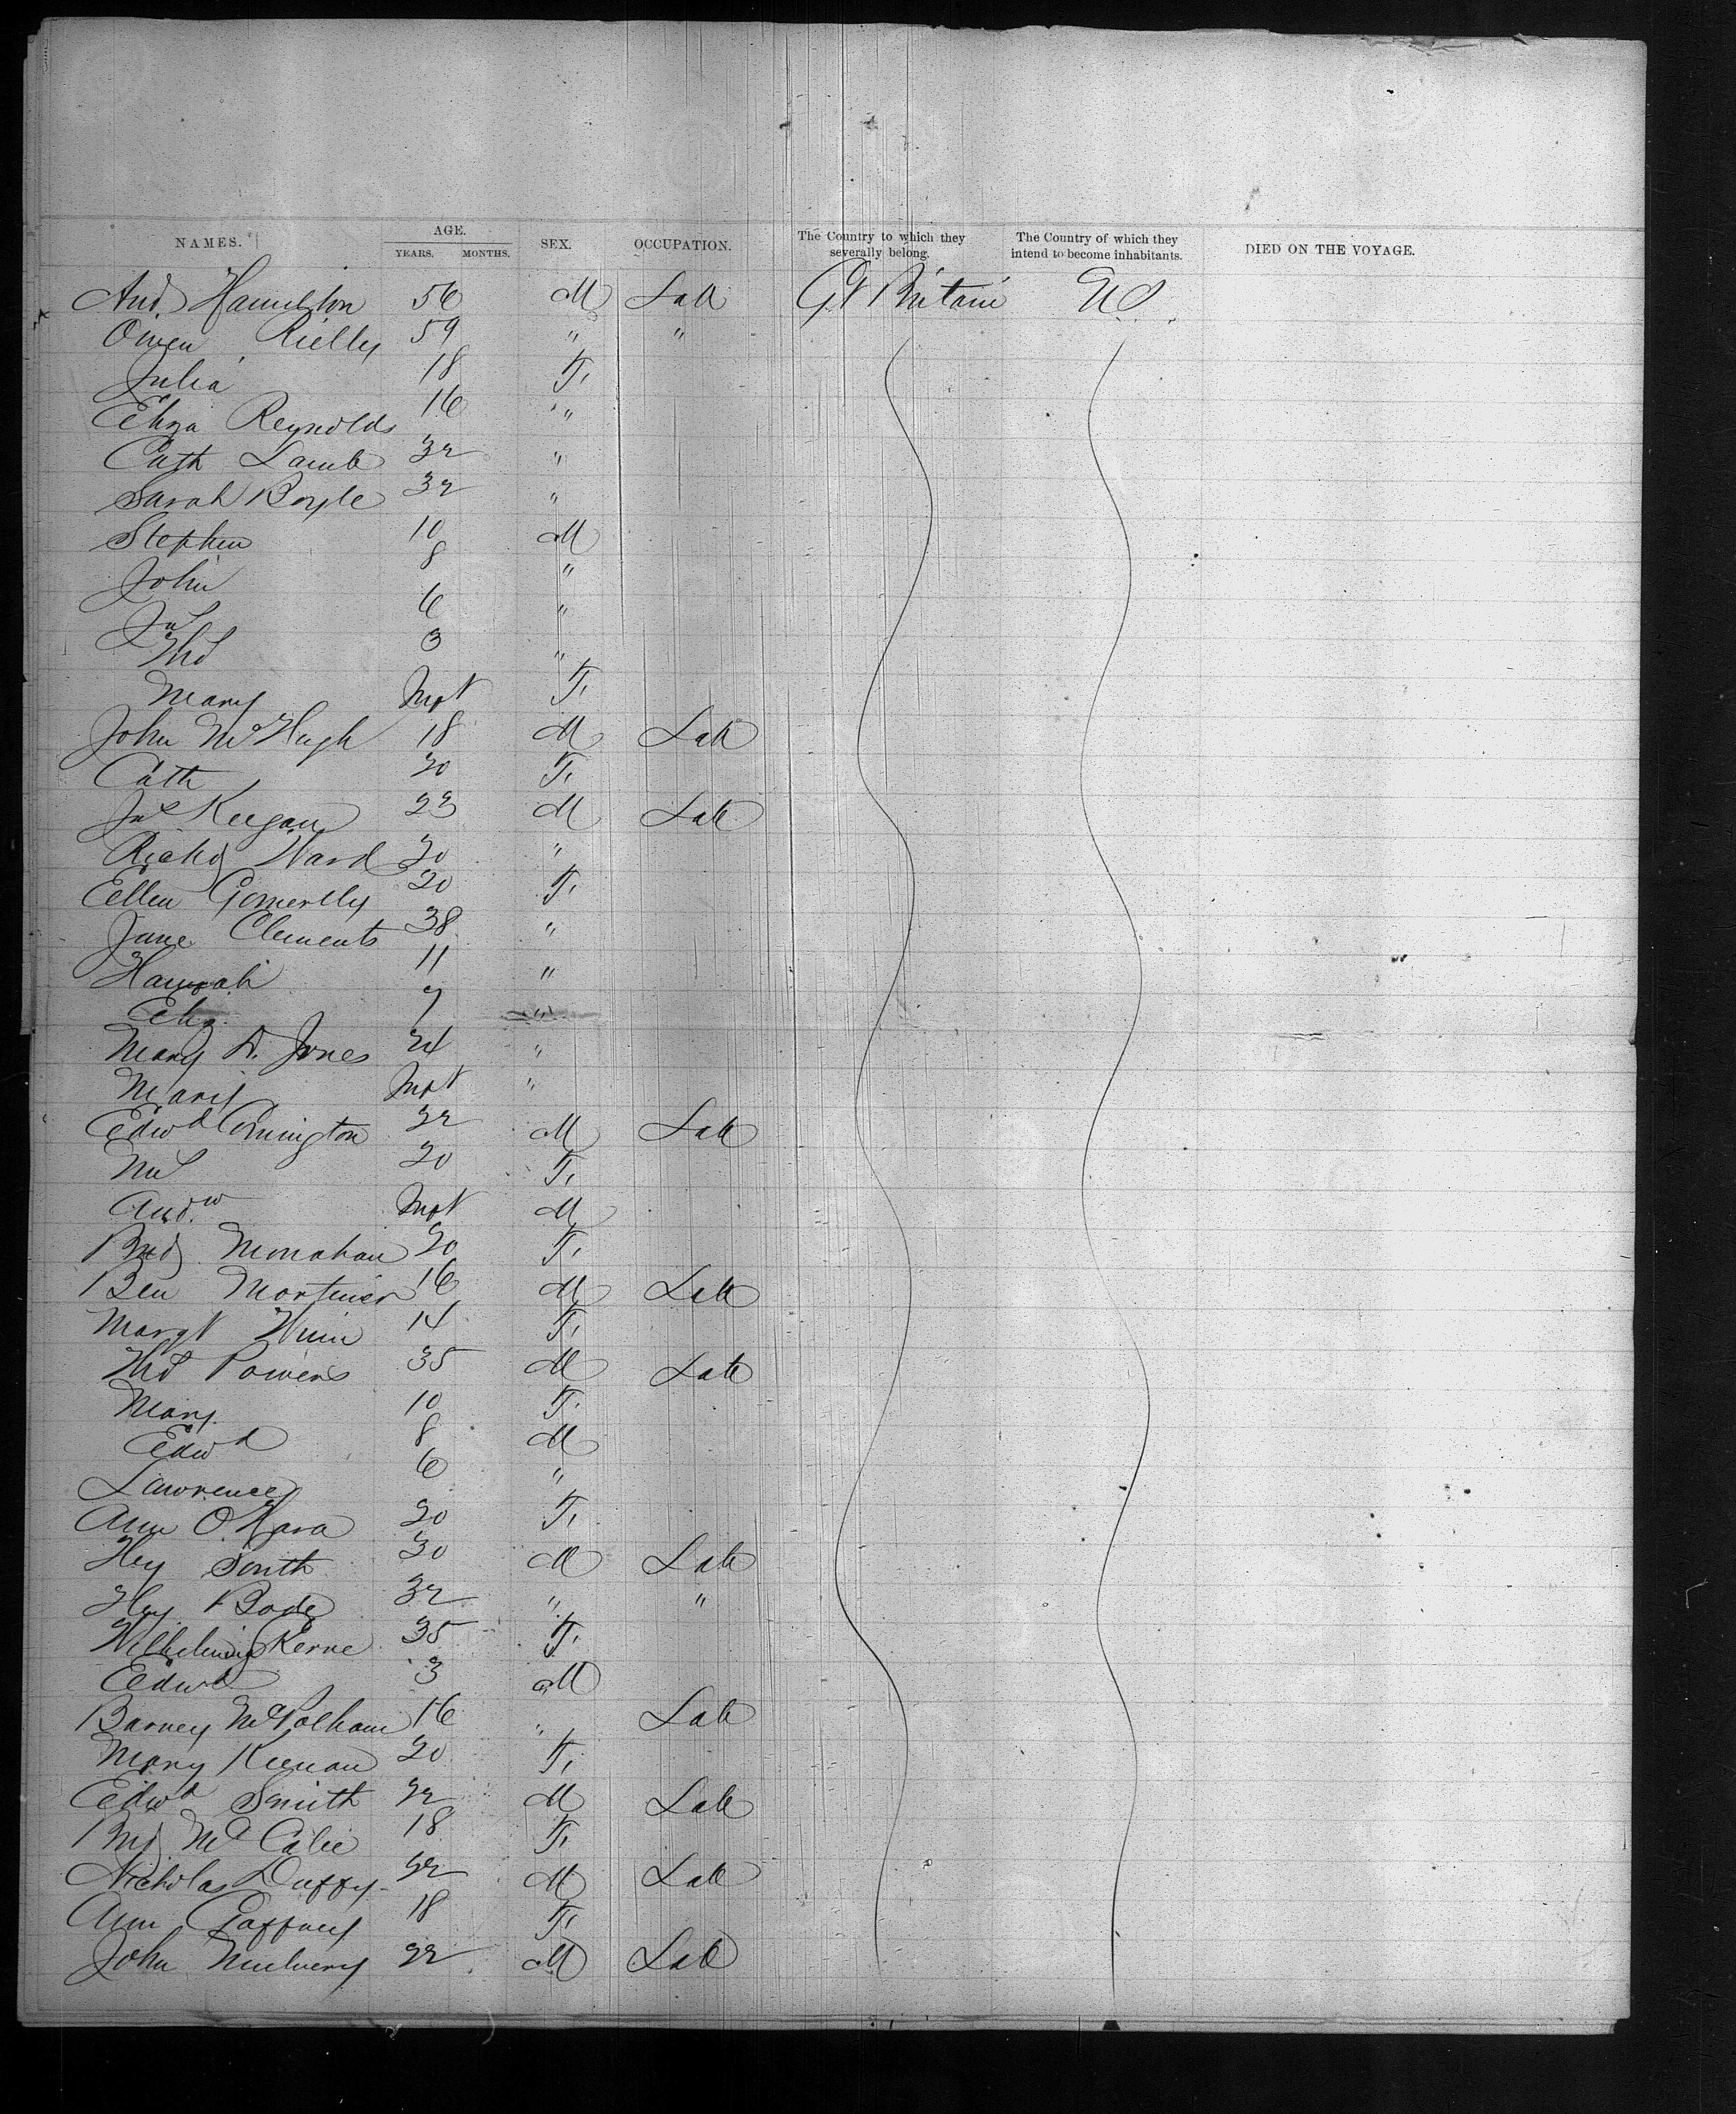 NAMES. AGE. SEX. OCCUPATION. The Country to which they severally belong. The Country of which they intend to become inhabitants. DIED ON THE VOYAGE.
YEARS. MONTHS.
And. Hamilton 56 M Lab Gt Britain U.S.
Owen Rielly 59 " "
Julia 18 F.
Eliza Reynolds 16 "
Cath Lamb 32 "
Sarah Boyle 32 "
Stephen 10 M
John 8 "
Jas 6 "
Thos 3 "
Mary Inft F.
John McHugh 18 M Lab
Cath 20 F.
Jas Keegan 23 M Lab
Richd Ward 30 "
Ellen Gomerlly 20 F.
Jane Clements 38 "
Hannah 11 "
Eliz. 7 "
Mary A. Jones 24 "
Mary Inft "
Edwd Connington 22 M Lab
20 F.
Andw Inft M
Bridg Monahan 20 F.
Ben Mortimer 16 M Lab
Margt Winn 14 F.
Thos Powers 35 M Lab
Mary 10 F.
Edwd 8 M
Lawrence 6 "
Ann O'Hara 20 F.
Hey Smith 30 M Lab
Hey Bode 32 " "
Wilhelmina Kerne 35 F.
Edwd 3 M
Barney 16 " Lab
Mary Keenan 20 F.
Edwd Smith 22 M Lab
Brid McCabe 18 F.
Nicholas Duffy 22 M Lab
Ann Gaffney 18 F.
John Mulvery 22 M Lab